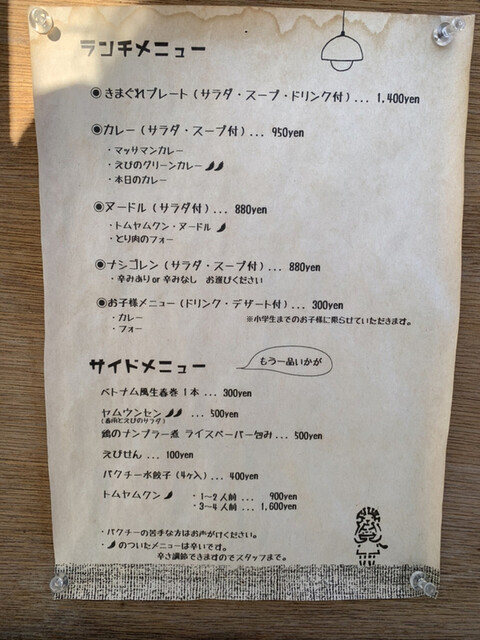 ランチメニュー
◉きまぐれプレート(サラダ・スープ・ドリンク付)... 1,400yen
◉カレー(サラダ・スープ付)... 950yen
・マッサマンカレー
・えびのグリーンカレー
・本日のカレー
◉ヌードル(サラダ付)... 880yen
・トムヤムクン・ヌードル
・とり肉のフォー
◉ナシゴレン(サラダ・スープ付)... 880yen
・辛みあり or 辛みなし お選びください
◉お子様メニュー(ドリンク・デザート付)... 300yen
・カレー
・フォー
※小学生までのお子様に限らせていただきます。
サイドメニュー
もう一品いかが
ベトナム風生春巻 1本 ... 300yen
ヤムウンセン ... 500yen
(春雨とえびのサラダ)
鶏のナンプラー煮 ライスペーパー包み... 500yen
えびせん ... 100yen
パクチー水餃子(4ヶ入)... 400yen
トムヤムクン ・1〜2人前 ... 900yen
・3〜4人前 ... 1,600yen
・パクチーの苦手な方はお声がけください。
・ のついたメニューは辛いです。
辛さ調節できますのでスタッフまで。